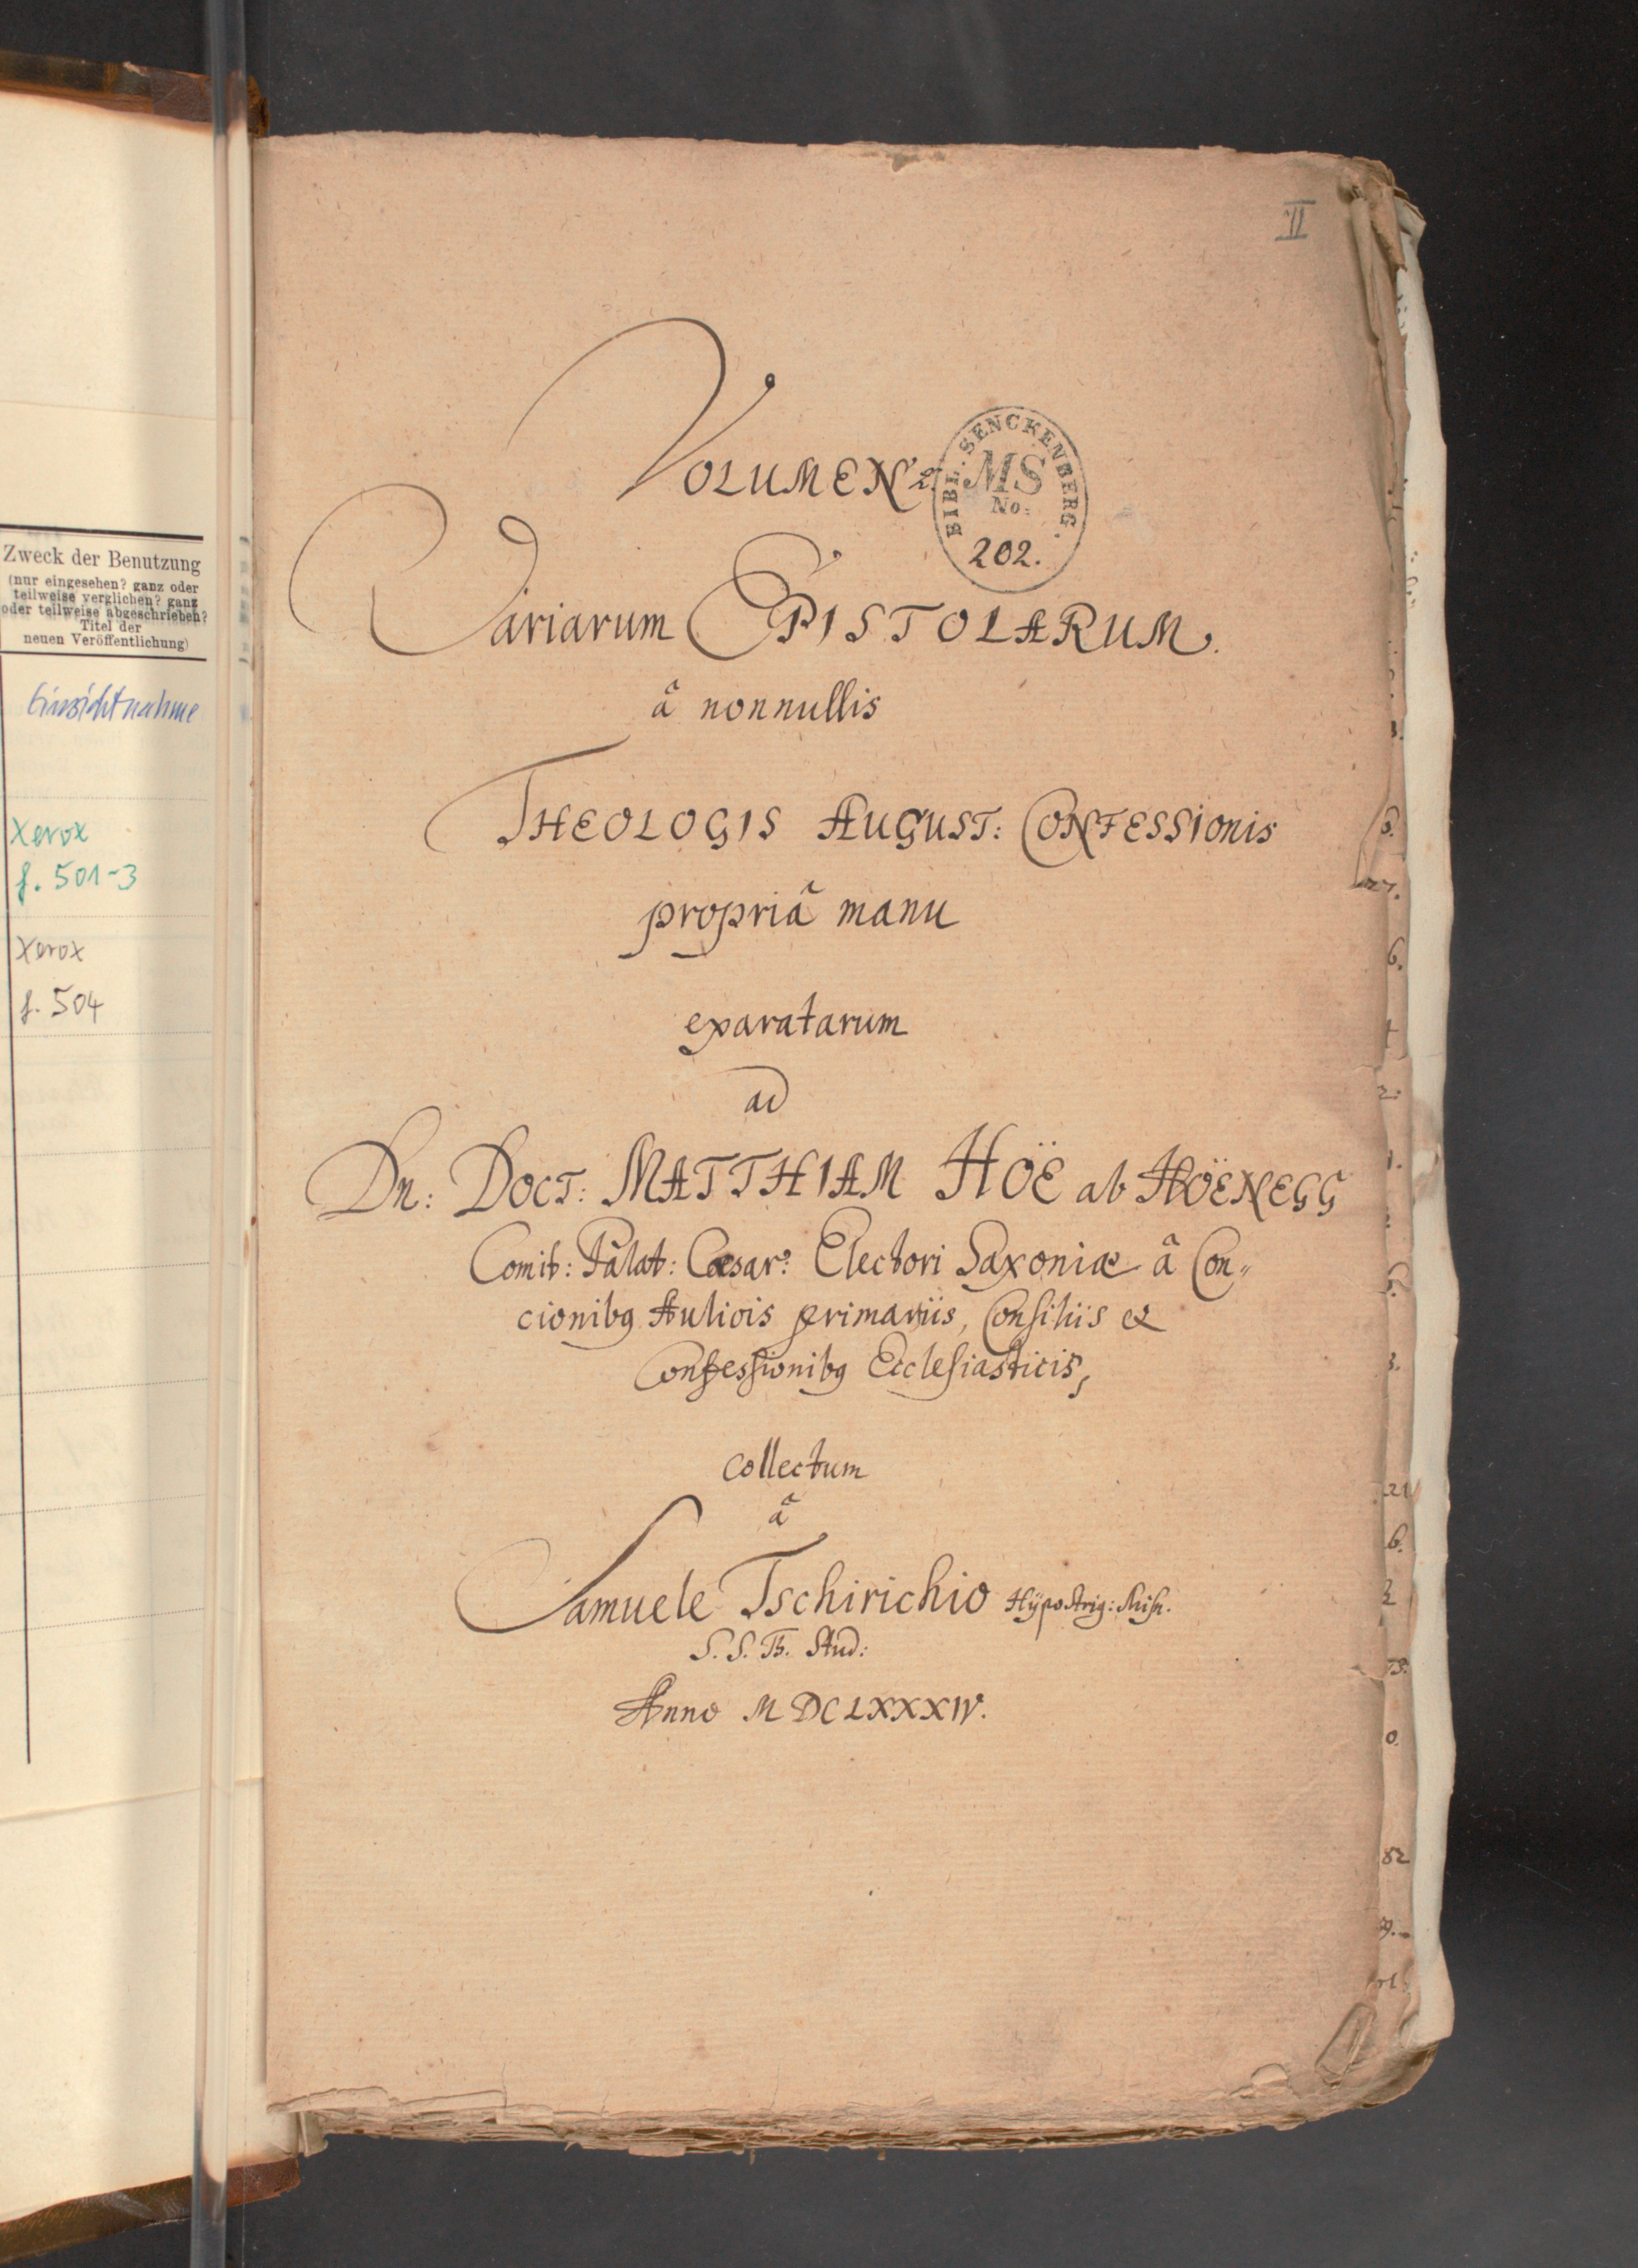 Zweck der Benutzung
(nur eingesehen? ganz oder
teilweise verglichen? ganz
oder teilweise abgeschrieben?
Titel der
neuen Veröffentlichung)
Einsichtnahme
Xerox
f. 501-3
Xerox
f. 504
II
VOLUMEN 2.
BIBL. SENCKENBERG.
MS
No:
202.
Variarum EPISTOLARUM.
â nonnullis
THEOLOGIS AUGUST: CONFESSIonis
propriâ manu
exaratarum
ad
Dn: DOCT: MATTHIAM HOË ab HOËNEGG
Comit: Palat: Cæsar: Electori Saxoniæ â Con„
cionibꝫ Aulicis primariis, Consiliis et
Confessionibꝫ Ecclesiasticis,
collectum
â
Samuele Tschirichio Hÿpostrig: Misn.
S. S. Th. Stud:
Anno MDCLXXXIV.